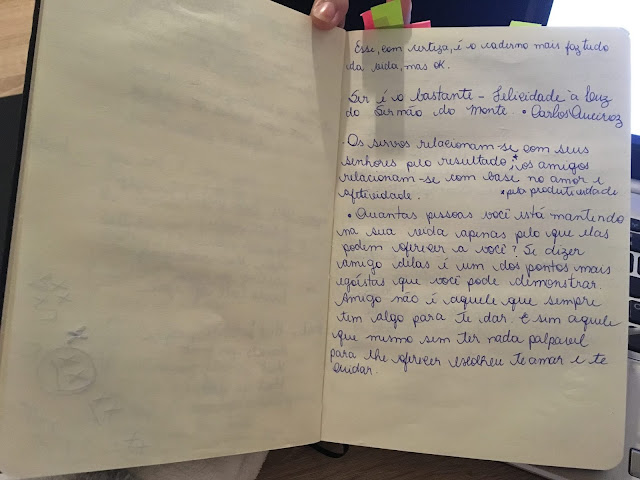 Esse, com certeza, é o caderno mais faz tudo
da vida, mas ok.
Ser é o bastante - Felicidade à luz
do Sermão do Monte. • Carlos Queiroz
. Os servos relacionam-se com seus
senhores pelo resultado*, os amigos
relacionam-se com base no amor e
efetividade. *pela produtividade
• Quantas pessoas você está mantendo
na sua vida apenas pelo que elas
podem oferecer a você? Se dizer
amigo delas é um dos pontos mais
egoístas que você pode demonstrar.
Amigo não é aquele que sempre
tem algo para te dar. E sim aquele
que mesmo sem ter nada palpável
para lhe oferecer escolheu te amar e te
cuidar.